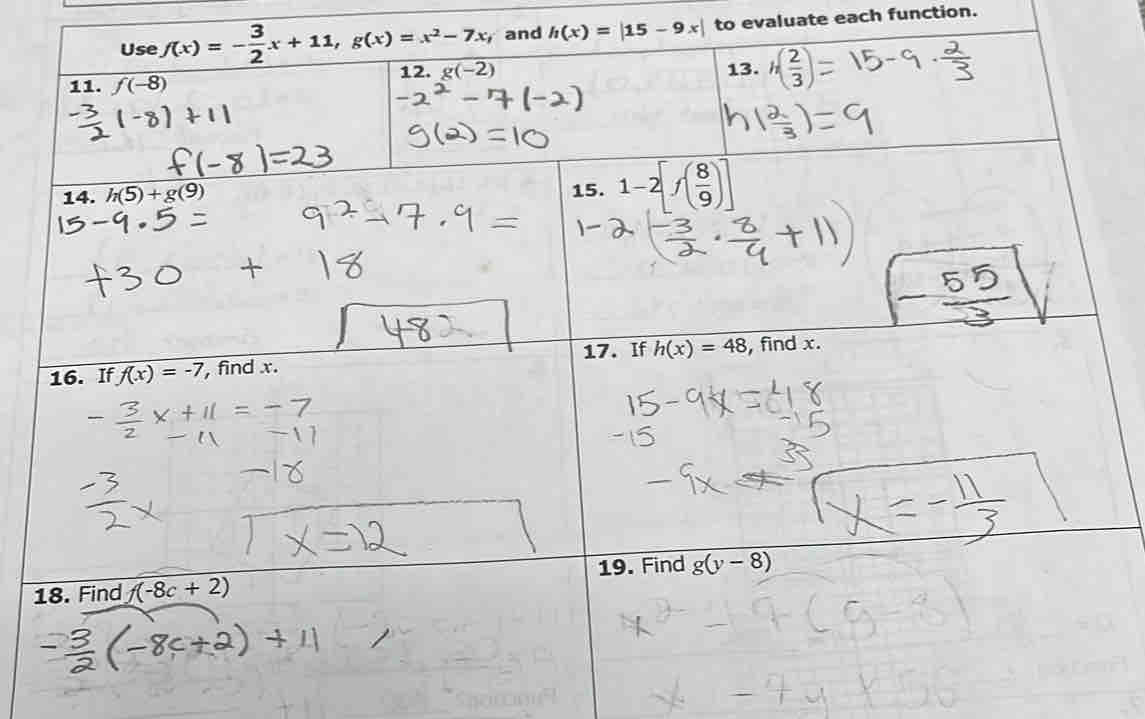 Use f(x) = -3/2x + 11, g(x) = x² - 7x, and h(x) = |15 - 9x| to evaluate each function.
11. f(-8)
-3/2(-8) + 11
f(-8) = 23
12. g(-2)
-2² - 7(-2)
g(2) = 10
13. h(2/3) = 15 - 9 · 2/3
h(2/3) = 9
14. h(5) + g(9)
15 - 9 · 5 = 9² - 7 · 9 =
+30 + 18
48
15. 1 - 2[f(8/9)]
1 - 2(-3/2 · 8/9 + 11)
-55/3
16. If f(x) = -7, find x.
-3/2 x + 11 = -7
- 11 -11
-3/2 x -18
x = 12
17. If h(x) = 48, find x.
15 - 9x = 48
-15 -15
-9x = 33
x = -11/3
18. Find f(-8c + 2)
-3/2(-8c + 2) + 11
19. Find g(y - 8)